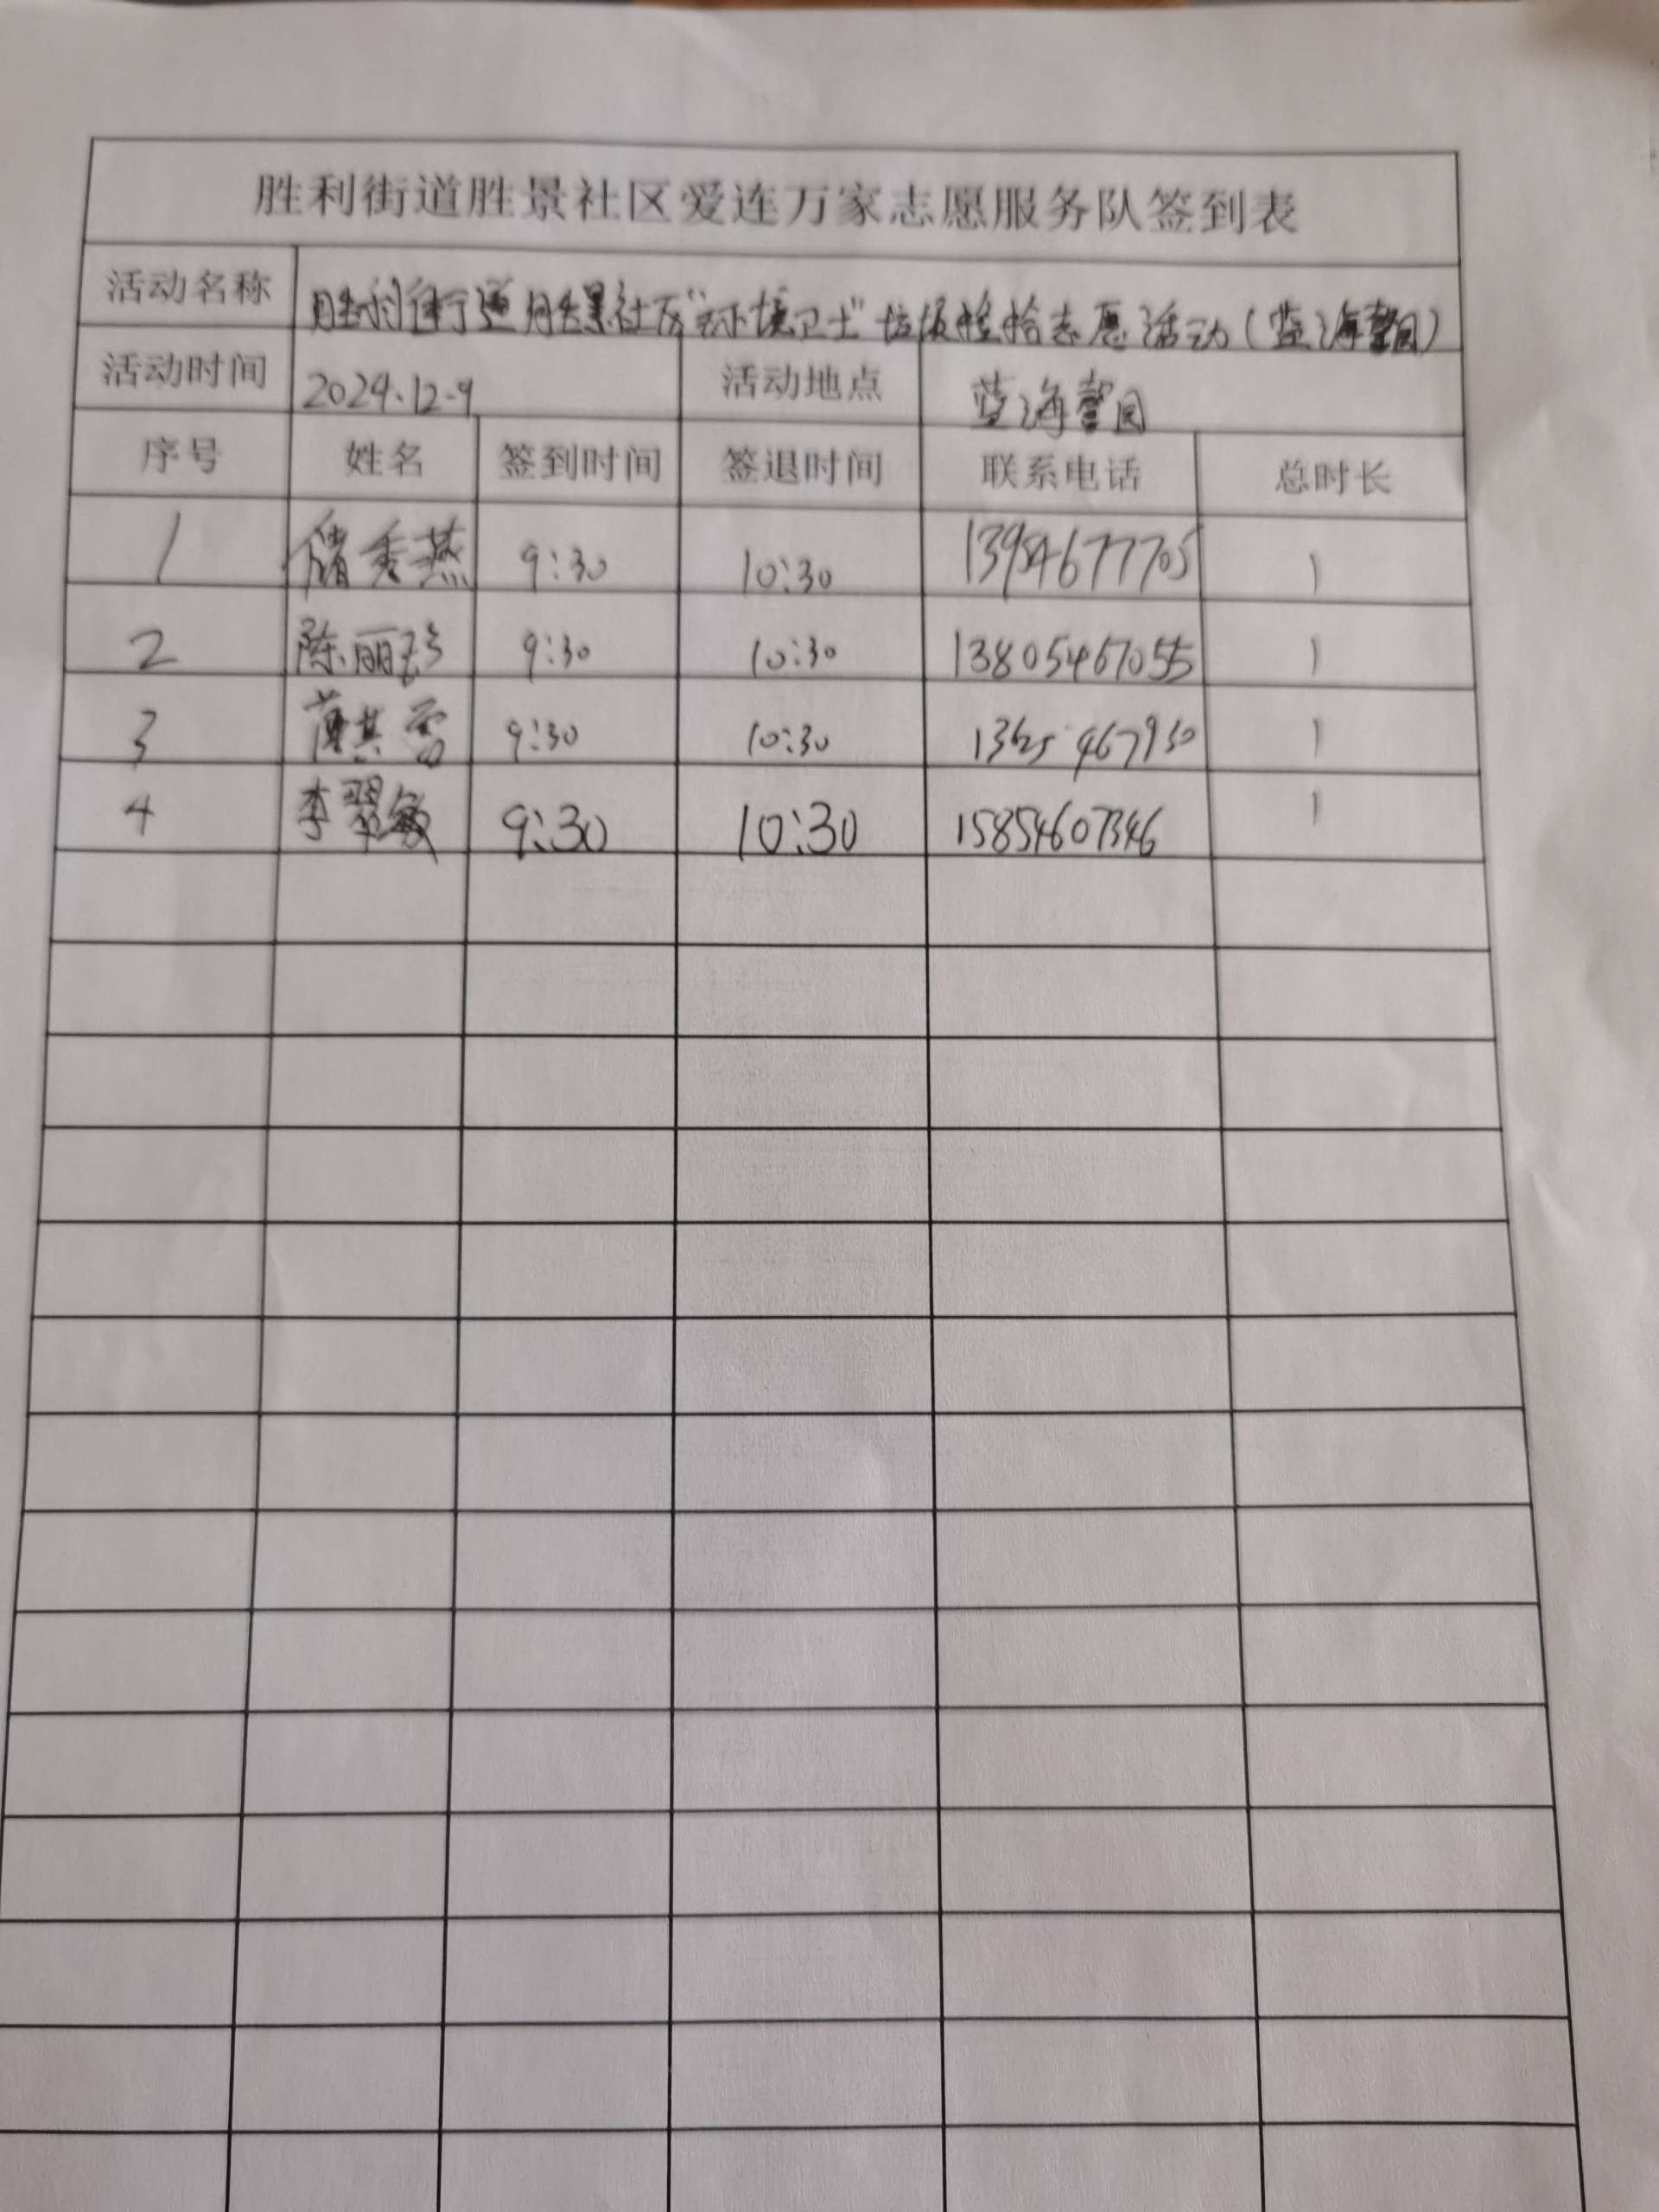 胜利街道胜景社区爱连万家志愿服务队签到表
活动名称 胜利街道胜景社区"环境卫士"垃圾捡拾志愿活动(蓝海馨园)
活动时间 2024.12.9 活动地点 蓝海馨园
序号 姓名 签到时间 签退时间 联系电话 总时长
1 储秀燕 9:30 10:30 13954677705 1
2 陈丽珍 9:30 10:30 13805467055 1
3 9:30 10:30 1
4 李翠敏 9:30 10:30 15854607346 1